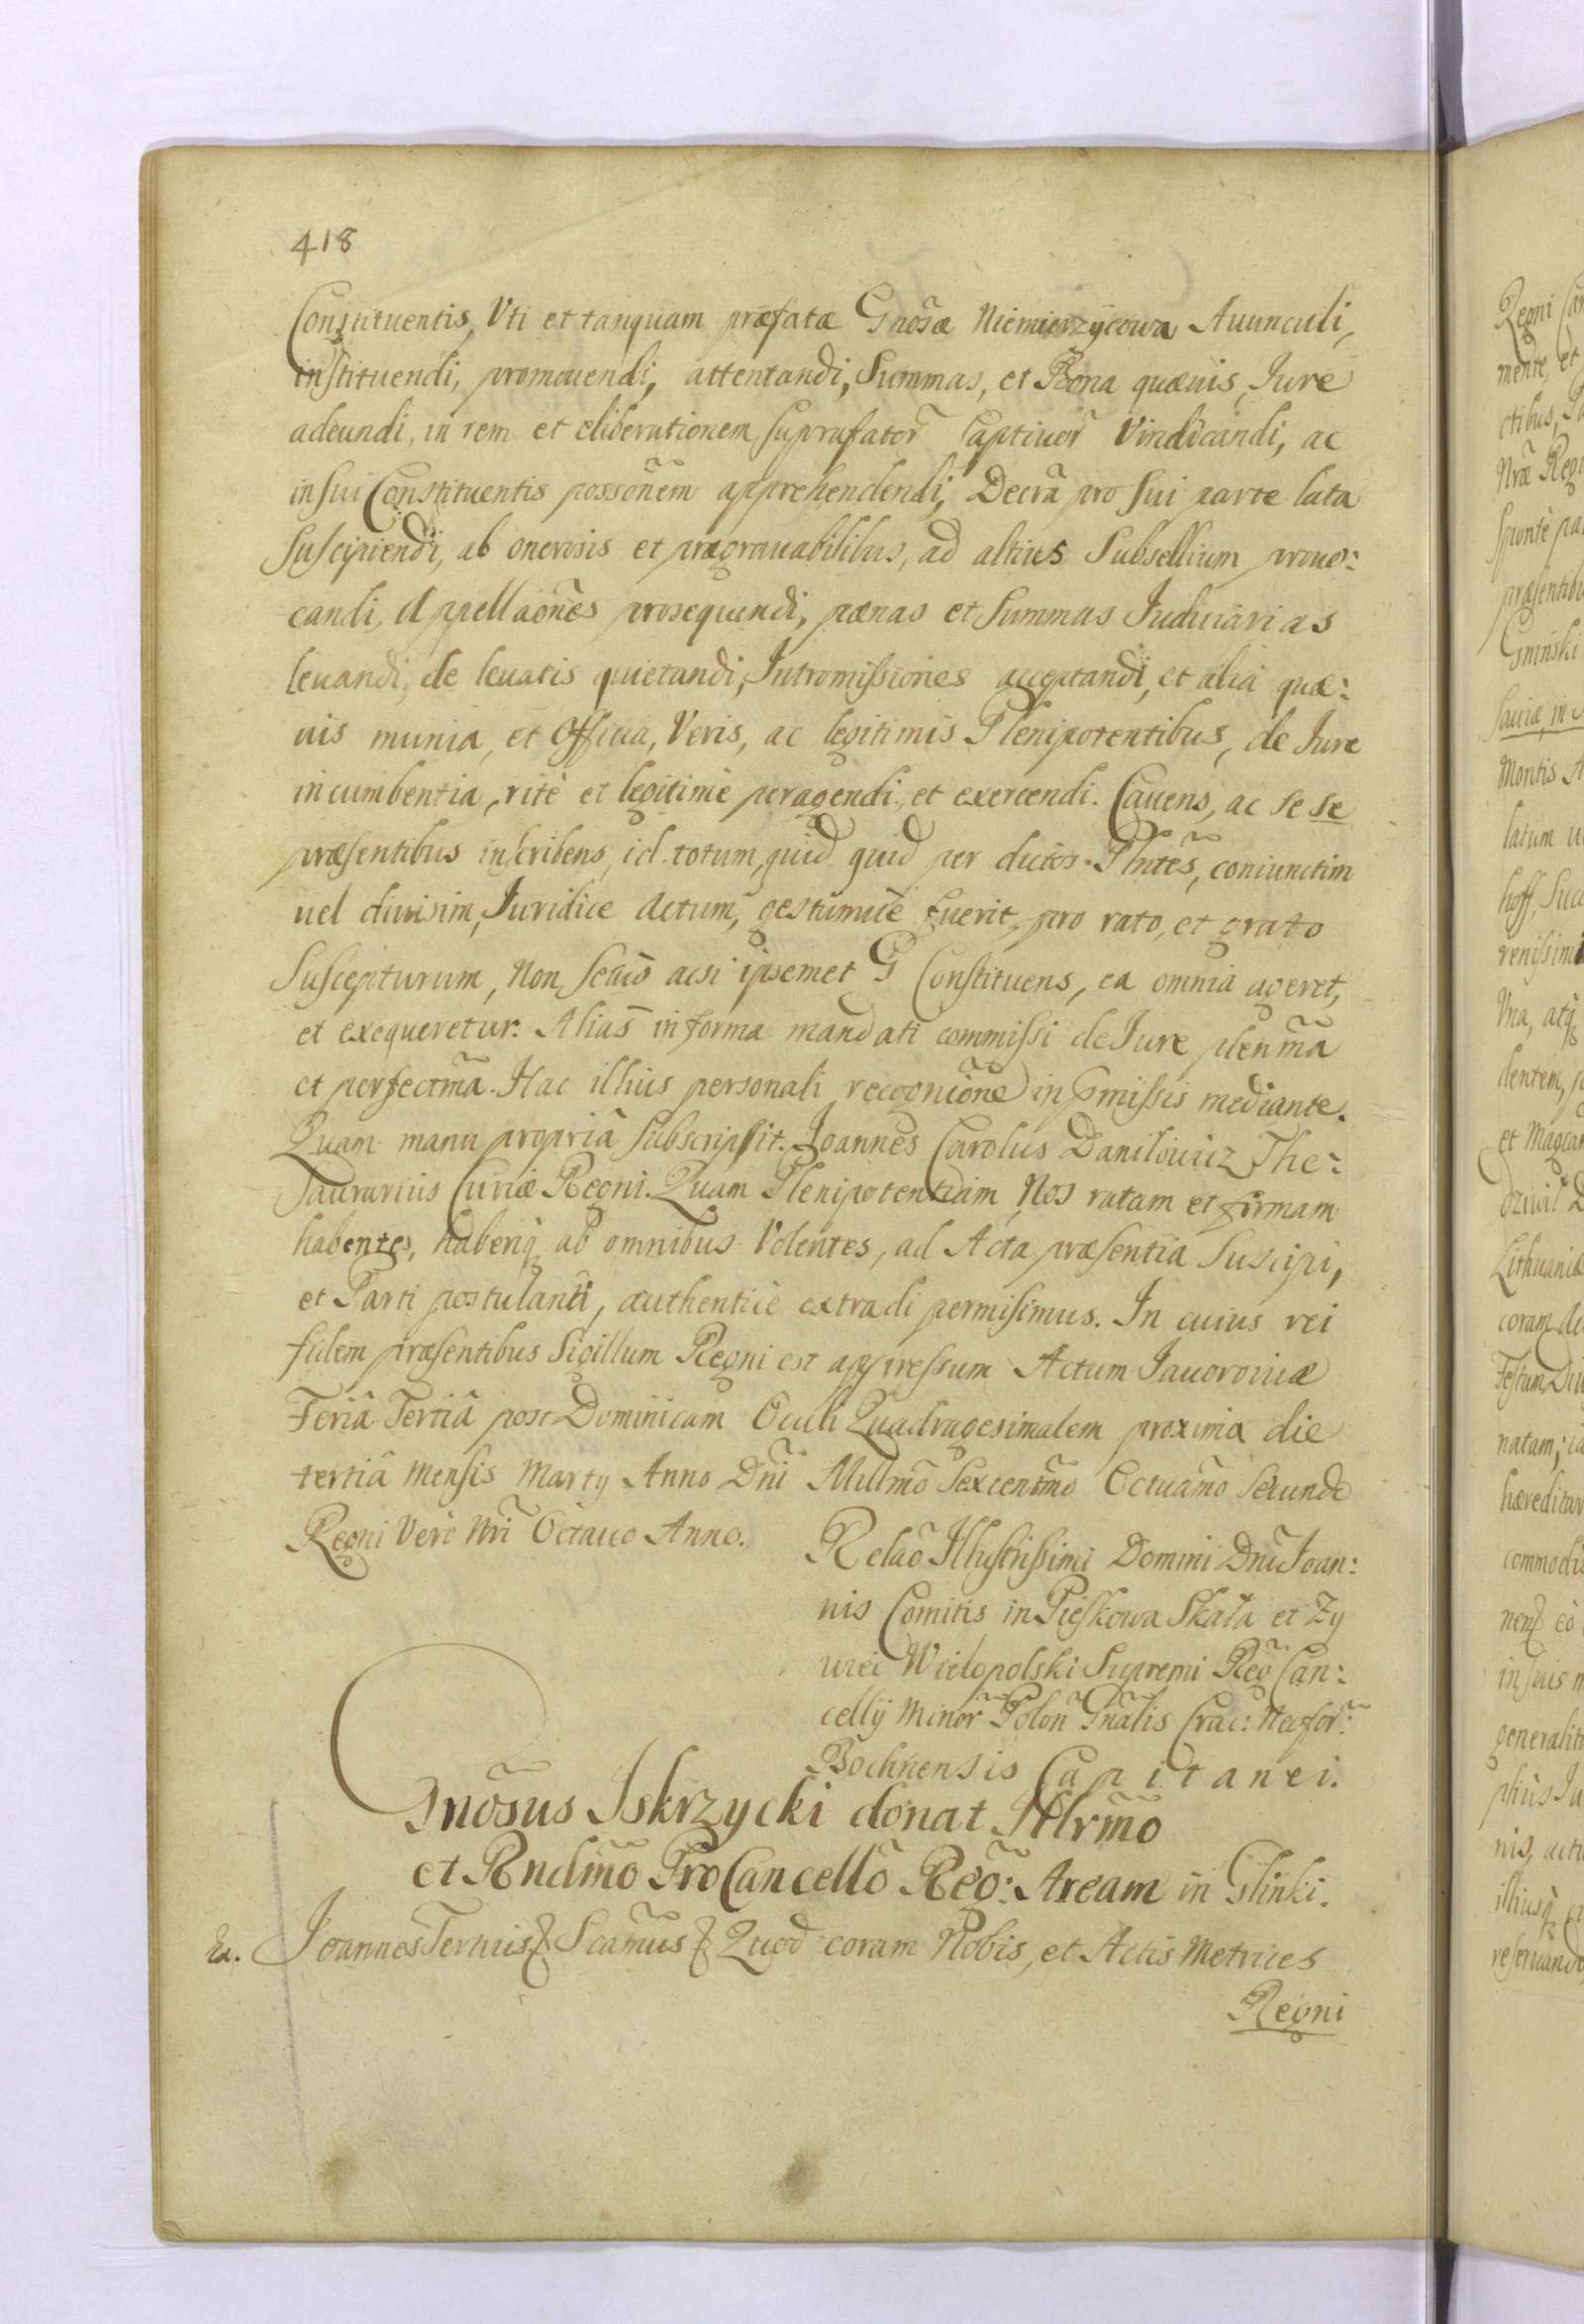 418
Constituentis, Vti et tanquam præfatæ Gnosæ Niemierzycowa Auunculi,
instituendi, promouendi, attentandi, Summas, et Bona quæuis, Iure
adeundi, in rem et eliberationem suprafator̃ Captiuor̃ Vindicandi, ac
in sui Constituentis possoñem apprehendendi, Decrã pro sui parte lata
Suscipiendi, ab onerosis et prægrauabilibus, ad altius Subsellium prouo:
candi, Appellaoñes prosequendi, pænas et Summas Iudiciarias
leuandi, de leuatis quietandi, Intromissiones acceptandi, et alia quæ:
uis munia, et Officia, Veris, ac legitimis Plenipotentibus, de Iure
incumbentia, ritè et legitimè peragendi, et exercendi. Cauens, ac se se
præsentibus inscribens, id totum, quid quid per dictos Plñtes, coniunctim
uel diuisim, Iuridice Actum, gestumue fuerit, pro rato, et grato
Suscepturum, Non Secus acsi ipsemet G Constituens, ea omnia ageret,
et exequeretur. Alias in forma mandati commissi de Iure plenm̃a
et perfectm̃a. Hac illius personali recognioñe in p̃missis mediante.
Quam manu propriâ subscripsit. Joannes Carolus Daniłouicz The:
saurarius Curiæ Regni. Quam Plenipotentiam, Nos ratam et firmam
habentes, haberiq̃ ab omnibus Volentes, ad Acta præsentia Suscipi,
et Parti postulanti, authenticè extradi permisimus. In cuius rei
fidem præsentibus Sigillum Regni est appressum Actum Jauorouiæ
Feriâ Tertiâ post Dominicam Oculi Quadragesimalem proxima die
tertiâ Mensis Martij Anno Dñi Millm̃o Sexcentm̃o Octuam̃o Secundo
Regni Verò Nr̃i Octauo Anno.
Relaõ Illustrissimi Domini Dnĩ Joan:
nis Comitis in Pieskowa Skała et Zy
wiec Wielopolski Supremi Reg̃ Can:
cellij Minor̃ Polon̄ Gñalis Crac: Neofor̃:
Bochnensis Capitanei.
Gnõsus Iskrzycki donat Illrm̃o
et Rndm̃o ProCancellõ Reg̃: Aream in Glinki.
Ex. Joannes Tertius & Scam̃us & Quod coram Nobis, et Actis Metrices
Regni